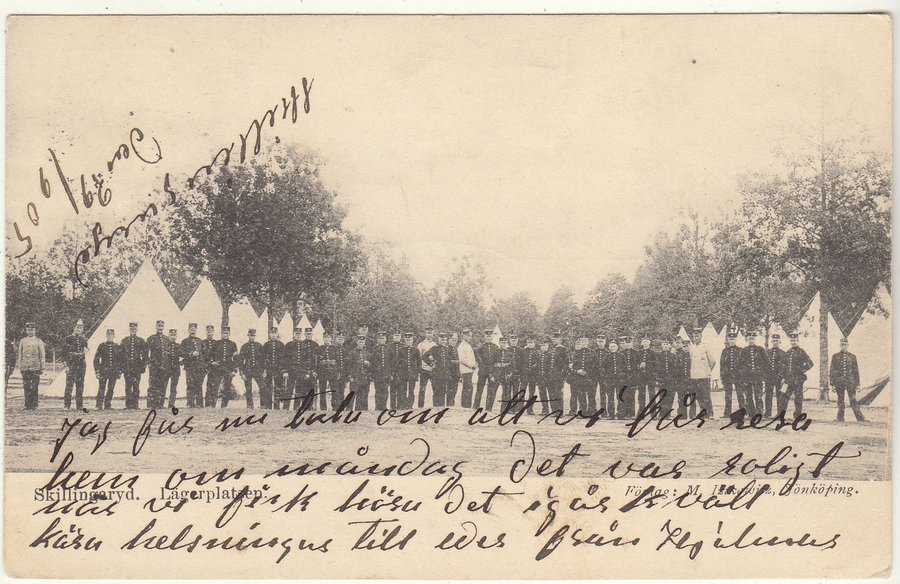 den 29/
1905
jag får nu tala om att vi får resa
hem om måndag det var roligt
Skillingaryd. Lägerplatsen.
Förlag: M. Jönköping.
när vi fick höra det igår kväll
kära helsningar till eder från Hjalmar